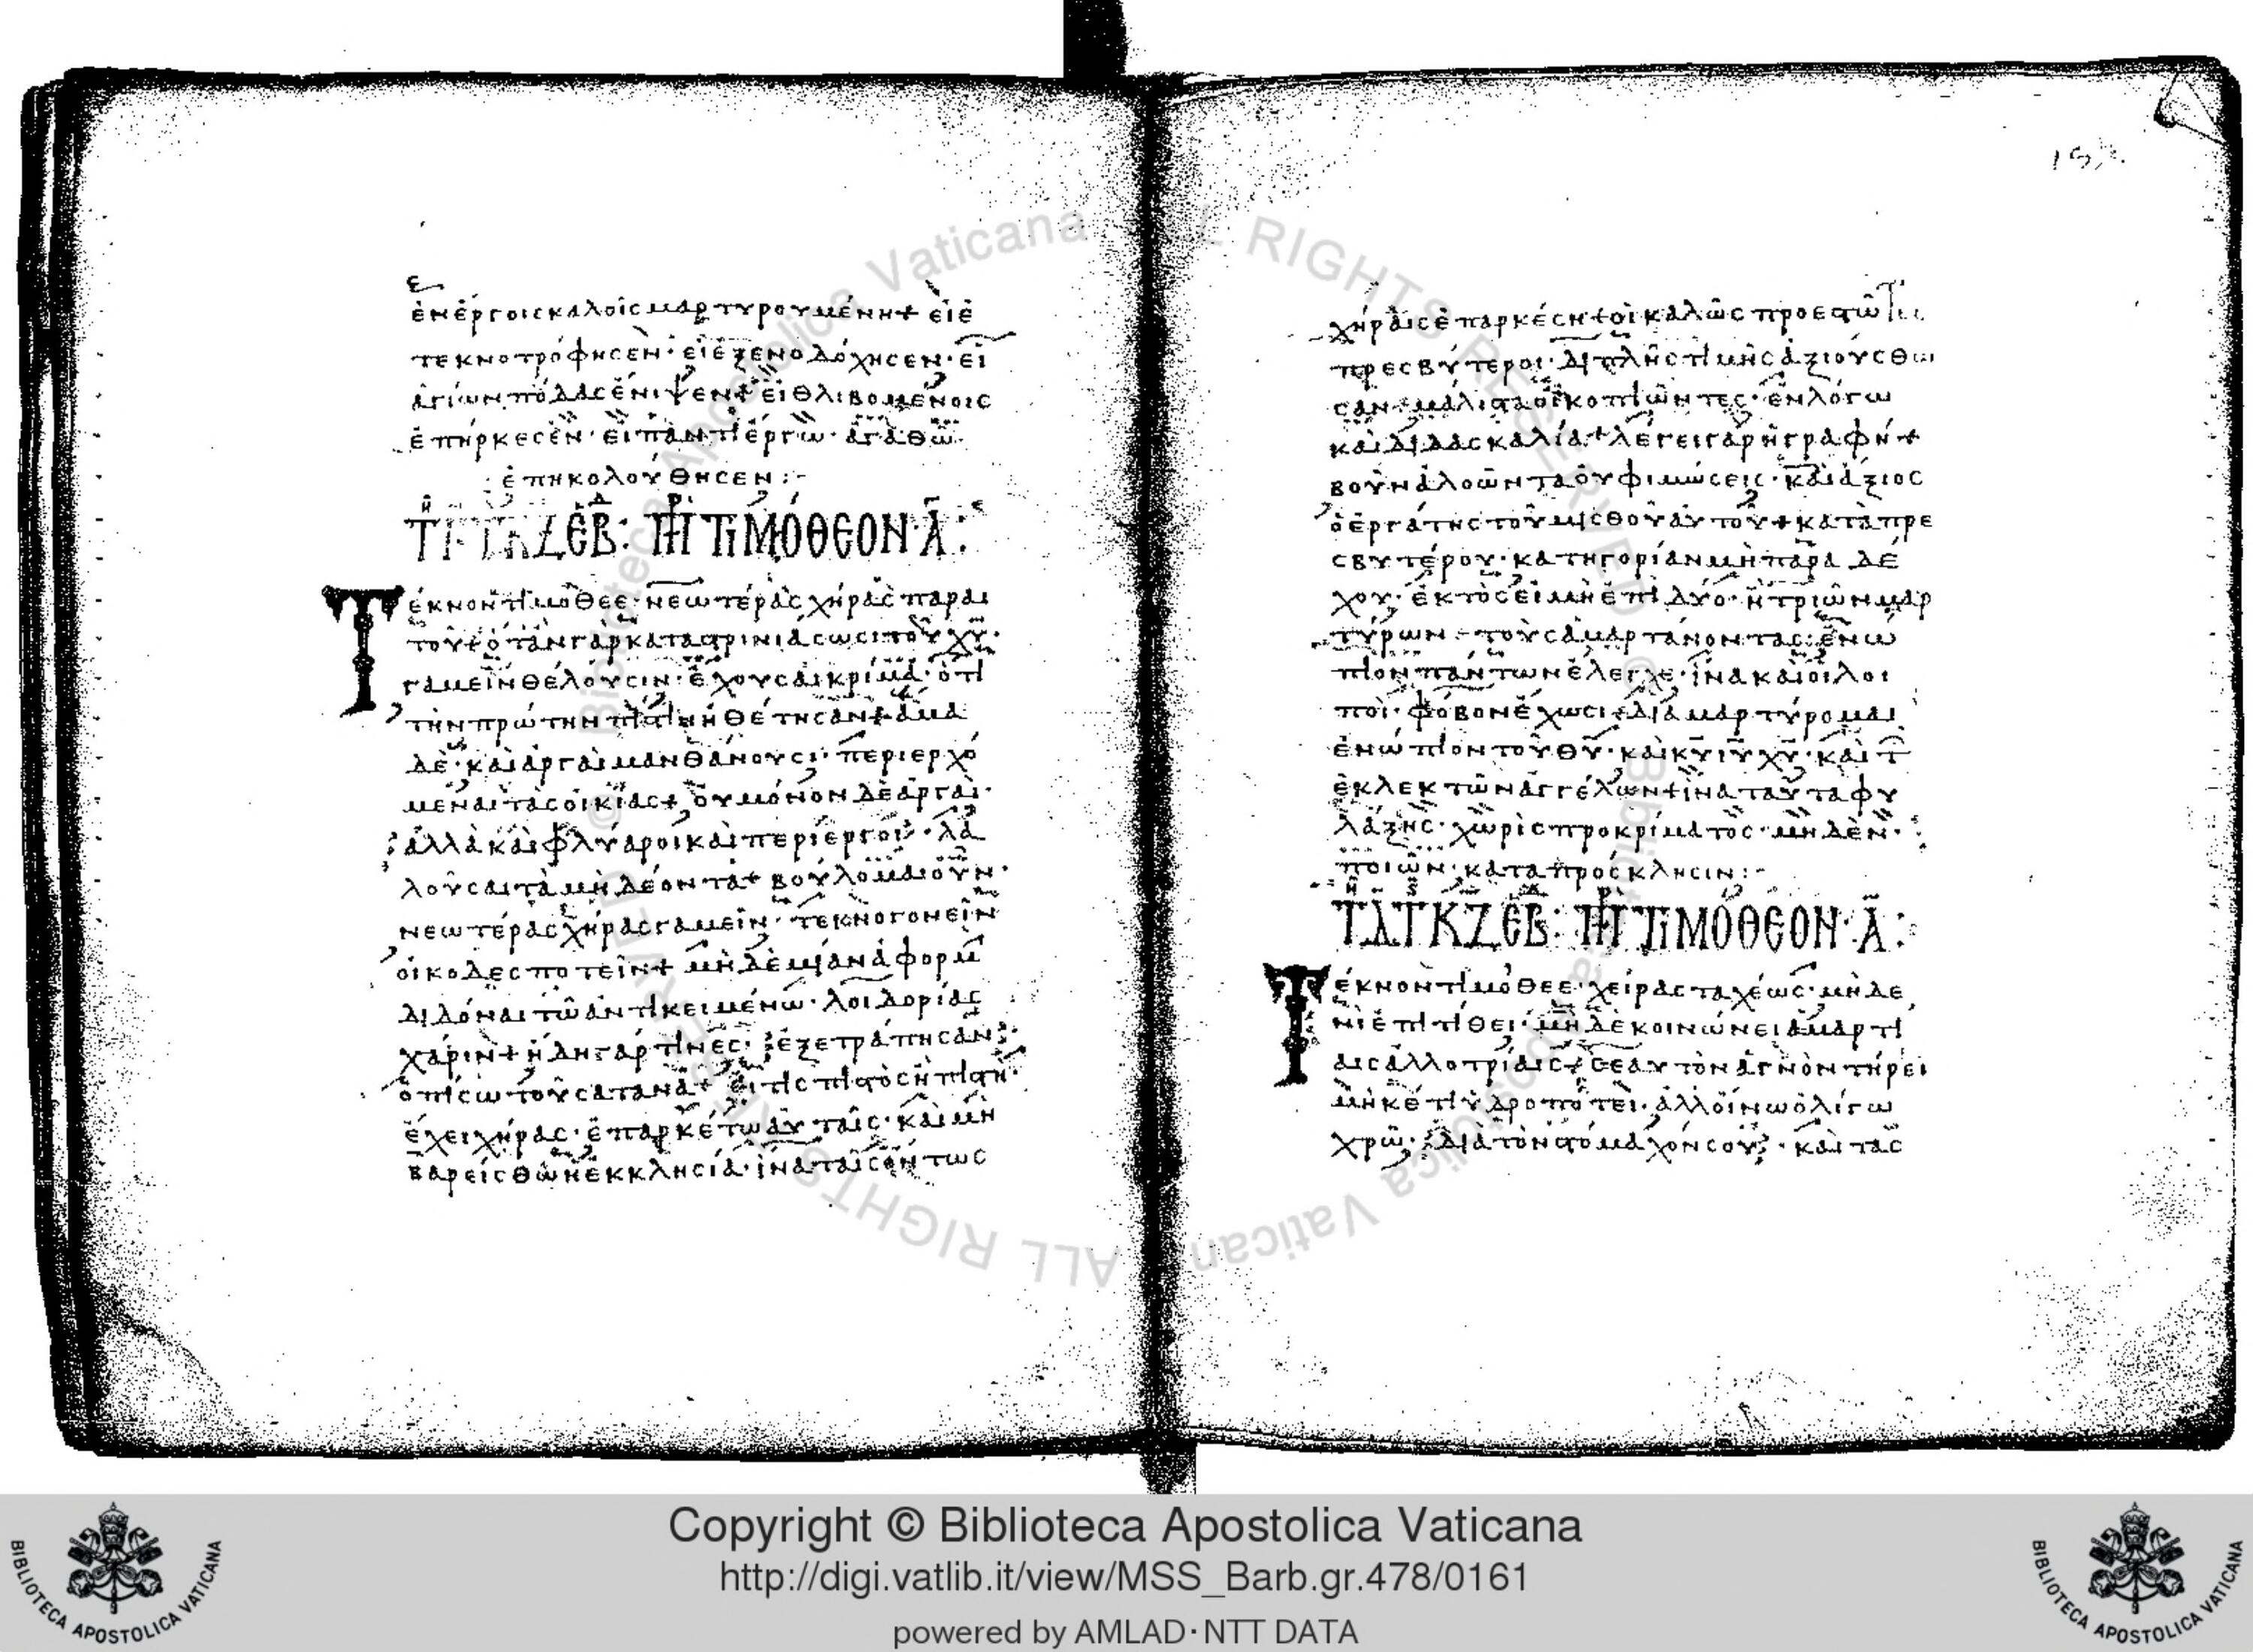 ἐν ἔργοις καλοῖς μαρτυρουμένη + εἰ ἐ
τεκνοτρόφησεν · εἰ ἐξενοδόχησεν · εἰ
ἁγίων πόδας ἔνιψεν + εἰ θλιβομένοις
ἐπήρκεσεν · εἰ παντὶ ἔργω · ἀγαθῶ
ἐπηκολούθησεν :-
ΤΙΜΌΘΕΟΝ · Α :
Τέκνον τιμόθεε · νεωτέρας χήρας παραι
τοῦ + ὅταν γὰρ καταστρινιάσωσι τοῦ χυ ·
γαμεῖν θέλουσιν · ἔχουσαι κρίμα · ὅτι
τὴν πρώτην πίστιν ἠθέτησαν + ἅμα
δὲ · καὶ ἀργαὶ μανθάνουσι · περιερχό
μεναι τὰς οἰκίας + οὐ μόνον δὲ ἀργαὶ ·
ἀλλὰ καὶ φλύαροι καὶ περίεργοι · λα
λοῦσαι τὰ μὴ δέοντα + βούλομαι οὖν ·
νεωτέρας χήρας γαμεῖν · τεκνογονεῖν
οἰκοδεσποτεῖν + μηδεμίαν ἀφορμ
διδόναι τῶ ἀντικειμένω · λοιδορίας
χάριν + ἤδη γάρ τινες · ἐξετράπησαν
ὀπίσω τοῦ σατανᾶ + εἴ τις πιστὸς ἢ πιστὴ ·
ἔχει χήρας · ἐπαρκέτω αὐταῖς · καὶ μὴ
βαρείσθω ἡ ἐκκλησία · ἵνα ταῖς ὄντως
χήραις ἐπαρκέση + οἱ καλῶς προεστῶτες
πρεσβύτεροι · διπλῆς τιμῆς ἀξιούσθω
σαν · μάλιστα οἱ κοπιῶντες · ἐν λόγω
καὶ διδασκαλία + λέγει γὰρ ἡ γραφή +
βοῦν ἀλοῶντα οὐ φιμώσεις · καὶ ἄξιος
ὁ ἐργάτης τοῦ μισθοῦ αὐτοῦ + κατὰ πρε
σβυτέρου · κατηγορίαν μὴ παρα δέ
χου · ἐκτὸς εἰ μὴ ἐπὶ δύο · ἢ τριῶν μαρ
τύρων · τοὺς ἁμαρτάνοντας · ἐνώ
πιον πάντων ἔλεγχε · ἵνα καὶ οἱ λοι
ποὶ · φόβον ἔχωσι + διαμαρτύρομαι
ἐνώπιον τοῦ θυ · καὶ κυ ιυ χυ · καὶ τ
ἐκλεκτῶν ἀγγέλων + ἵνα ταῦτα φυ
λάξης · χωρὶς προκρίματος · μηδὲν ·
ποιῶν · κατὰ πρόσκλησιν :-
ΤΙΜΌΘΕΟΝ · Α :
Τέκνον τιμόθεε · χεῖρας ταχέως · μηδε
νὶ ἐπιτίθει · μηδὲ κοινώνει ἁμαρτί
αις ἀλλοτρίαις + σεαυτὸν ἁγνὸν τήρει
μηκέτι ὑδροπότει · ἀλλ οἴνω ὀλίγω
χρῶ · διὰ τὸν στόμαχόν σου · καὶ τὰς
Copyright © Biblioteca Apostolica Vaticana
http://digi.vatlib.it/view/MSS_Barb.gr.478/0161
powered by AMLAD·NTT DATA
BIBLIOTECA APOSTOLICA VATICANA
BIBLIOTECA APOSTOLICA VATICANA